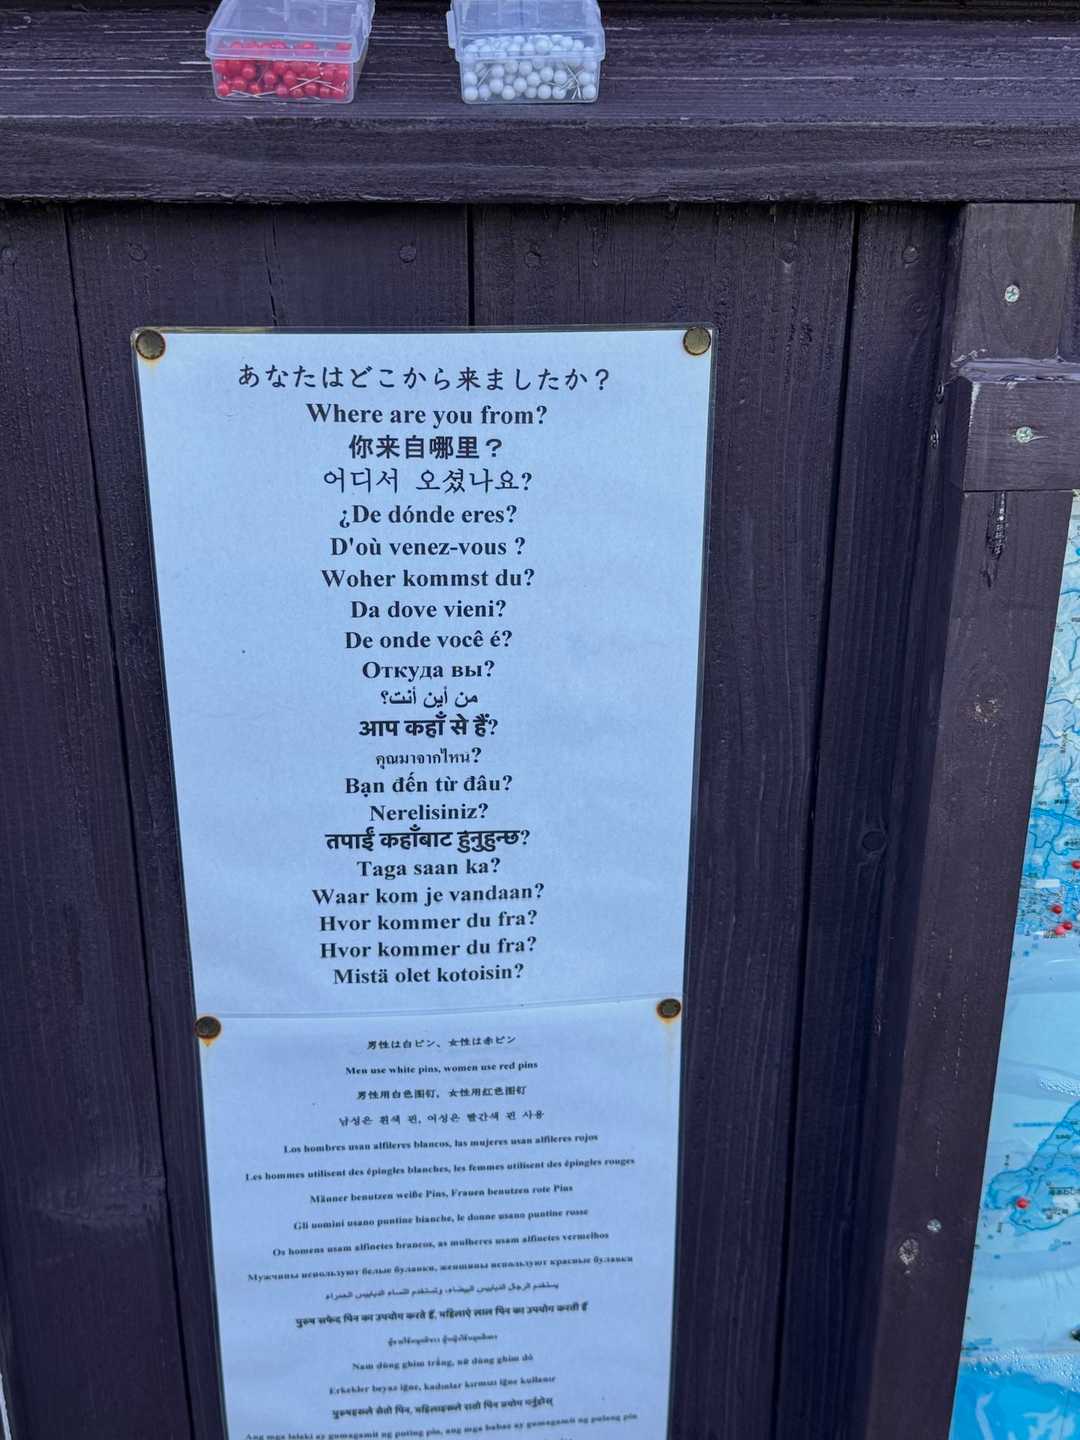 あなたはどこから来ましたか？
Where are you from?
你来自哪里？
어디서 오셨나요?
¿De dónde eres?
D'où venez-vous ?
Woher kommst du?
Da dove vieni?
De onde você é?
Откуда вы?
من أين أنت؟
आप कहाँ से हैं?
คุณมาจากไหน?
Bạn đến từ đâu?
Nerelisiniz?
तपाईं कहाँबाट हुनुहुन्छ?
Taga saan ka?
Waar kom je vandaan?
Hvor kommer du fra?
Hvor kommer du fra?
Mistä olet kotoisin?
男性は白ピン、女性は赤ピン
Men use white pins, women use red pins
男性用白色图钉，女性用红色图钉
남성은 흰색 핀, 여성은 빨간색 핀 사용
Los hombres usan alfileres blancos, las mujeres usan alfileres rojos
Les hommes utilisent des épingles blanches, les femmes utilisent des épingles rouges
Männer benutzen weiße Pins, Frauen benutzen rote Pins
Gli uomini usano puntine bianche, le donne usano puntine rosse
Os homens usam alfinetes brancos, as mulheres usam alfinetes vermelhos
Мужчины используют белые булавки, женщины используют красные булавки
يستخدم الرجال الدبابيس البيضاء، وتستخدم النساء الدبابيس الحمراء
पुरुष सफेद पिन का उपयोग करते हैं, महिलाएं लाल पिन का उपयोग करती हैं
Nam dùng ghim trắng, nữ dùng ghim đỏ
Erkekler beyaz iğne, kadınlar kırmızı iğne kullanır
पुरुषहरूले सेतो पिन, महिलाहरूले रातो पिन प्रयोग गर्नुहोस्
Ang mga lalaki ay gumagamit ng puting pin, ang mga babae ay gumagamit ng pulang pin